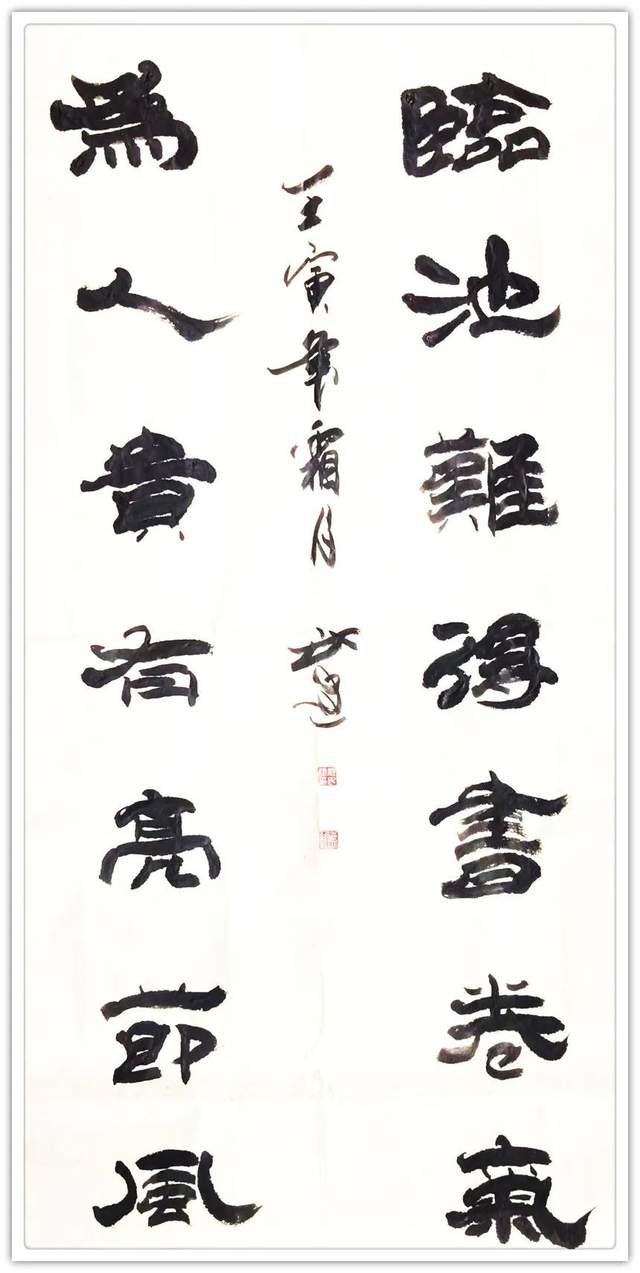 臨池難得書卷氣
為人貴有亮節風
壬寅年霜月